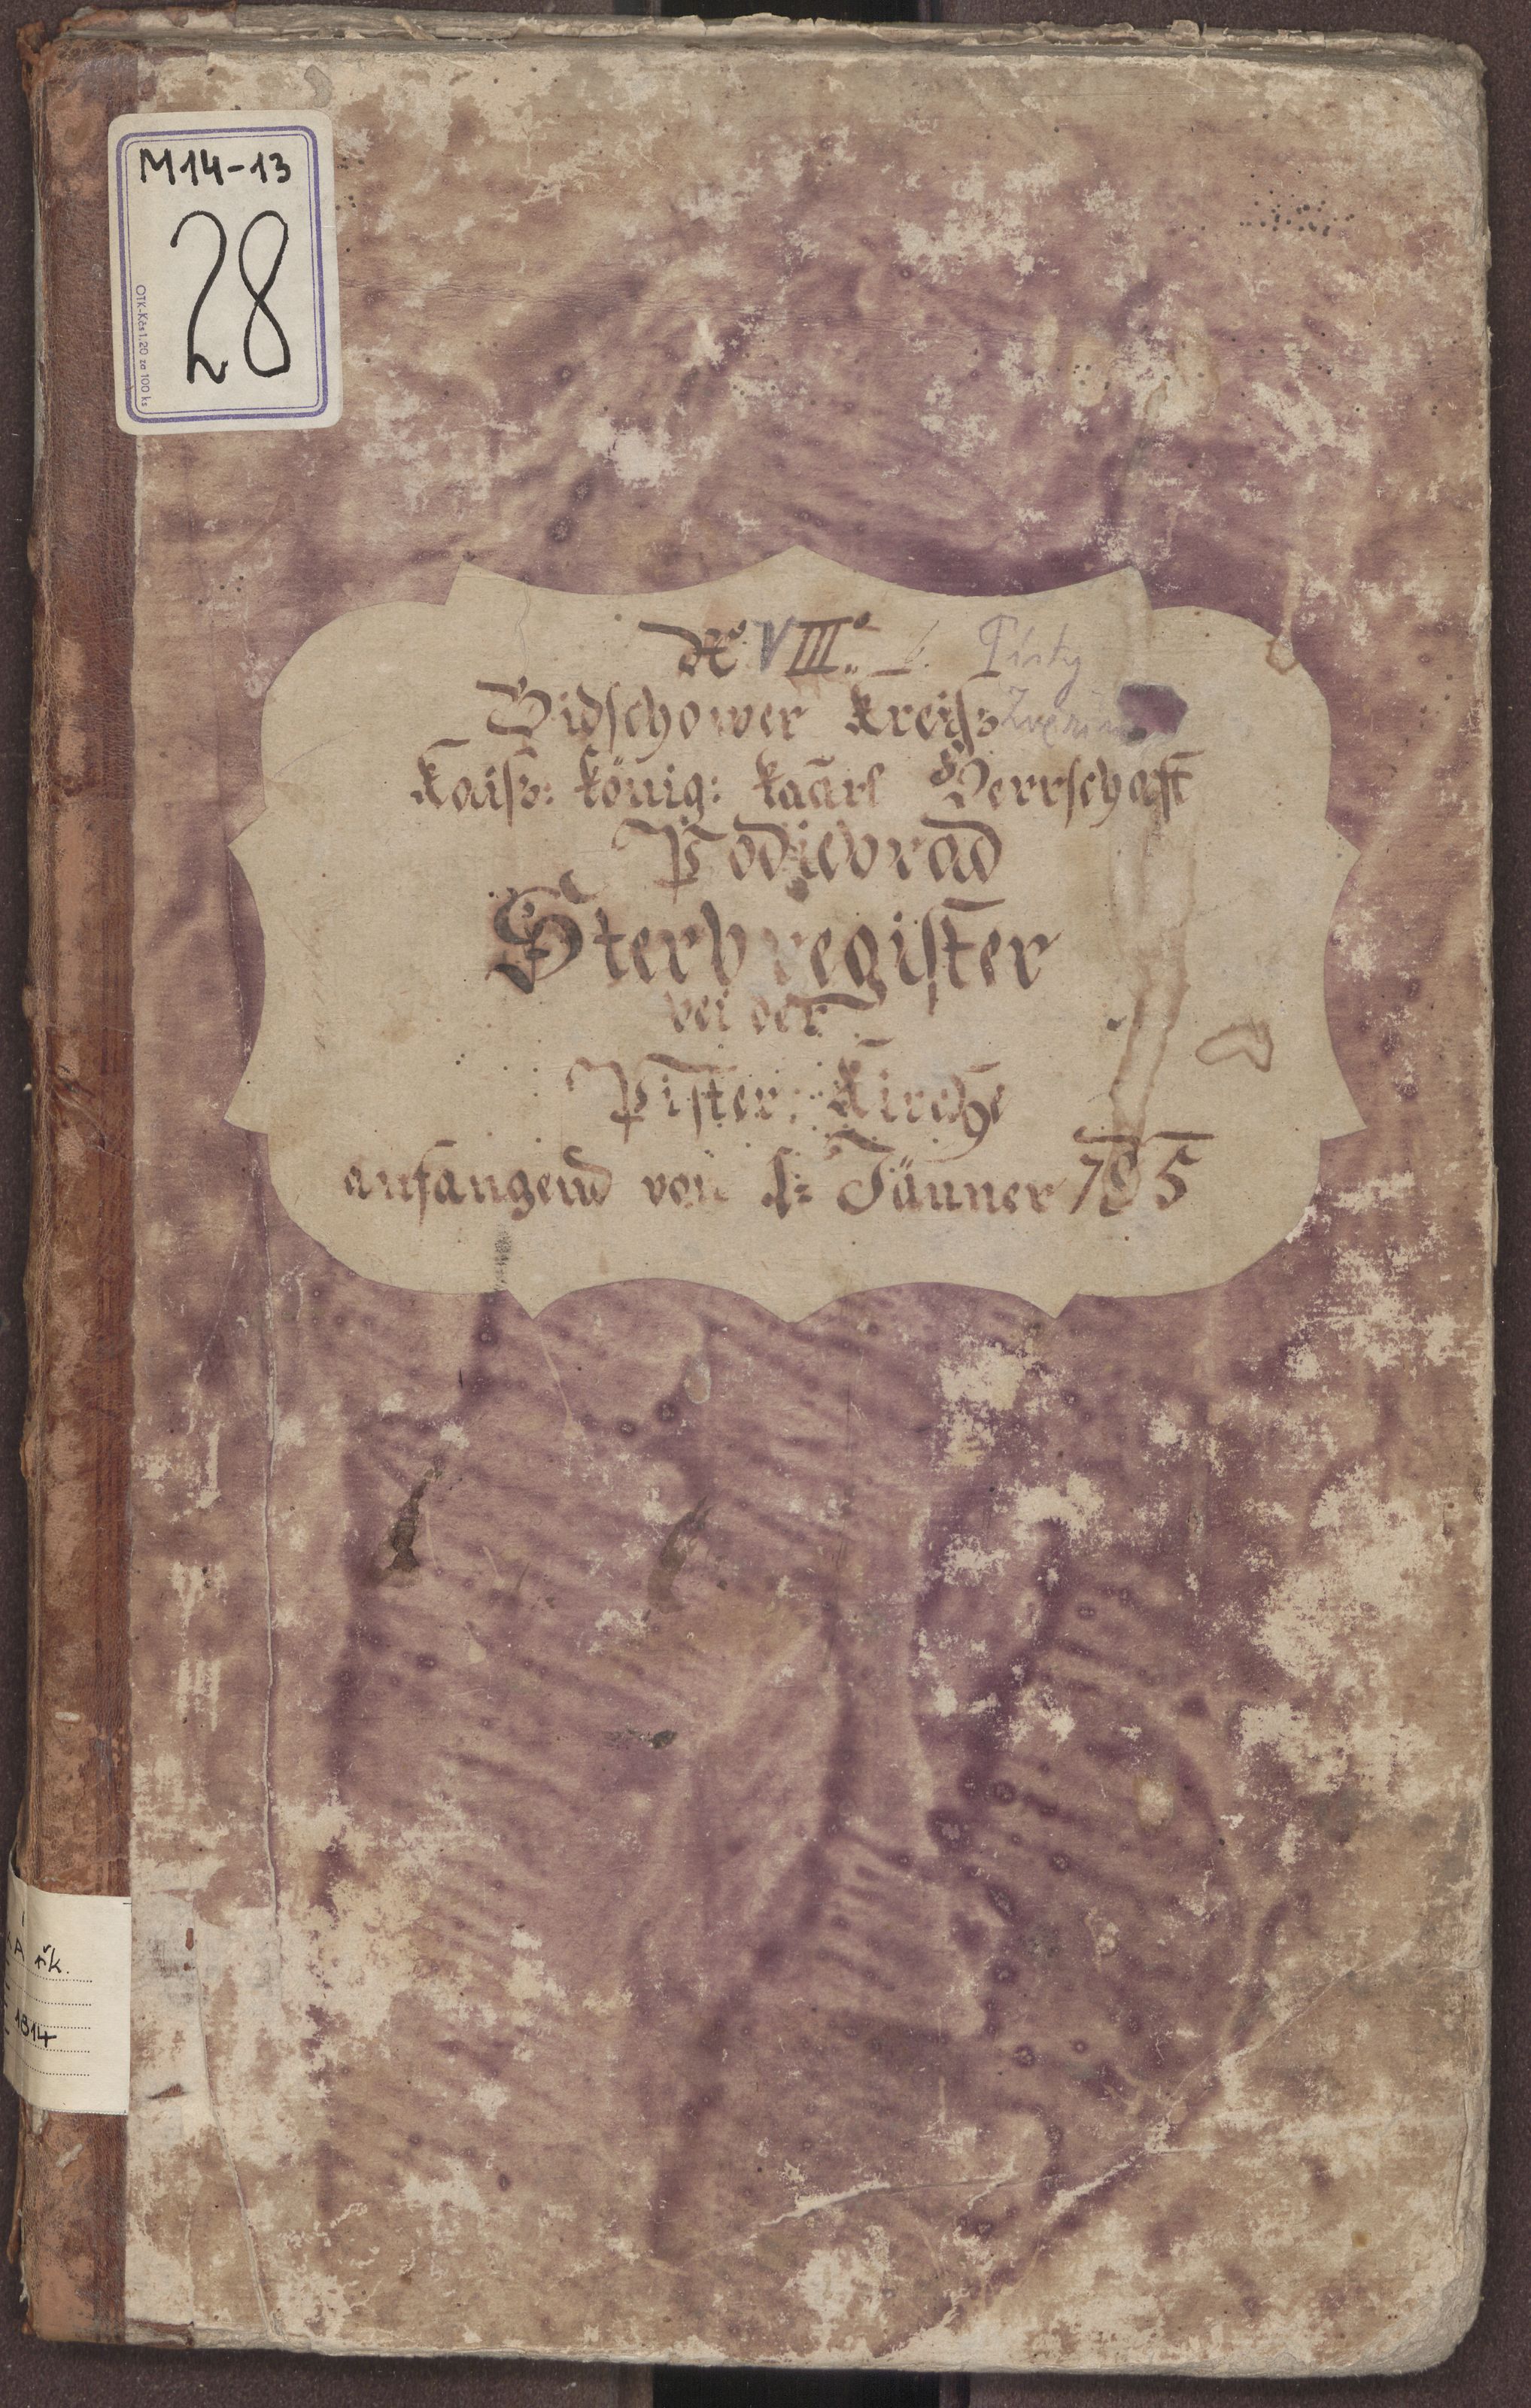 M14-13
28
OTK-Kčs 1.20 za 100 ks
No VIII. Písty
Bidschower Kreiss
Kaiss: König: Herrschaft
Podiebrad
Sterbregister
bei der
Pister: Kirche
anfangend von 1: Jänner 785
řk.
1814